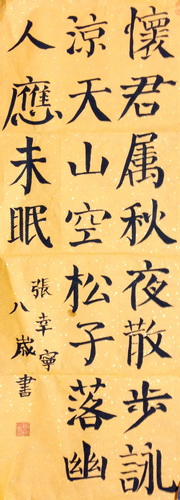 懷君属秋夜散步詠
涼天山空松子落幽
人應未眠
張幸寧
八歲書